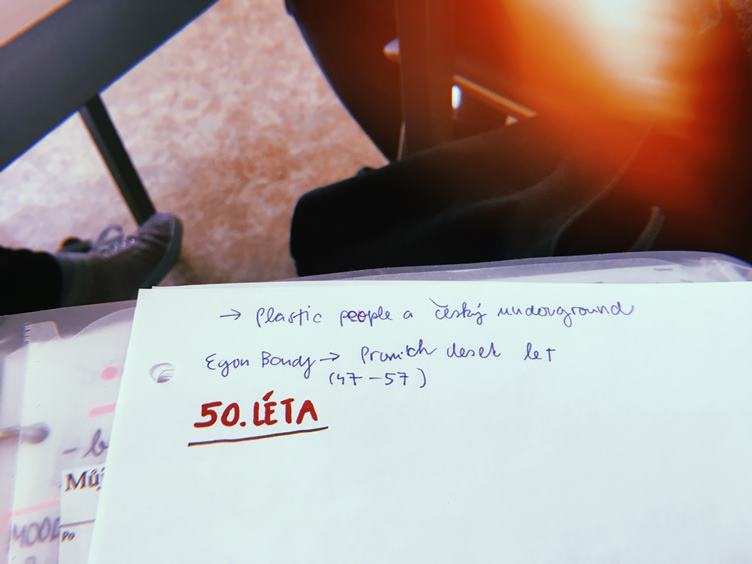 → Plastic people a český underground
Egon Bondy → Prvních deset let
(47-57)
50. LÉTA
- b
Můj
MOOD
Po